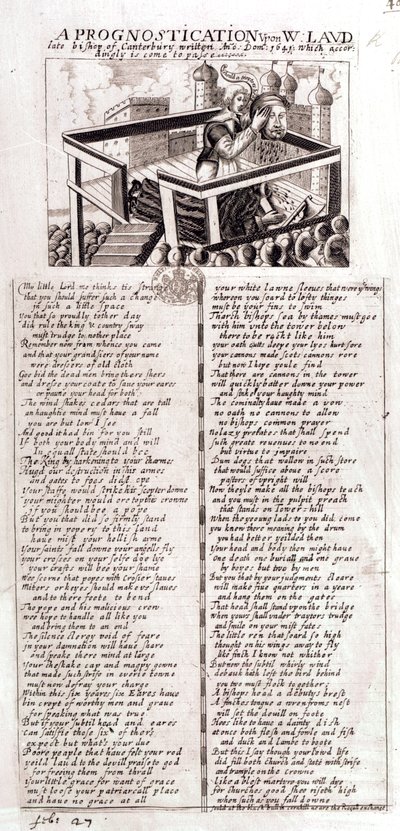 A PROGNOSTICATION Vpon W: LAVD
late bishop of Canterbury written An⁰: Dom: 1641: which accor-
dingly is come to passe
My little Lord me thinks tis strange
that you should suffer such a change
in such a little space
You that so proudly tother day
did rule the king & country sway
must trudge to nother place
Remember now from whence you came
and that your grandsiers of your name
were dresers of old cloth
Goe bid the dead men bring there shers
and drese your coate to save your eares
or pawne your head for both
The wind shakes cedars that are tall
an haughtie mind must have a fall
you are but low I see
And good it had bin for you still
If both your body mind and will
In equall state should bee
The King by harkening to your charmes
Hugd our distruction in his armes
and oates to foes did
Your staffe would strike his scepter downe
your mighter would ore top the crowne
if you should bee a pope
But you that did so firmly stand
to bring in popery to this land
have mist your hellish arme
Your saints fall downe your angells fly
your croses on your selfe doe lye
your crafts will bee your shame
Wee scorne that popes with crosier staues
Miters or keyes should make vs slaues
and to there feete to bend
The pope and his malicious crew
wee hope to handle all like you
and bring them to an end
The silence clergy void of feare
in your damnation will haue share
and speake there mind at large
Your cap and magpy gowne
that made such strife in everie towne
must now defray your charge
Within this six yeares six Eares haue
bin cropt of worthy men and graue
for speaking what was true
But if your subtil head and eares
can satisfie those six of thers
expect but what's your due
Poore people that haue felt your rod
yeild laud to the devill praise to god
for freeing them from thrall
your little grace for want of grace
must loose your patriarcall place
and haue no grace at all
your white lawne sleeues that were wings
whereon you soard to lofty things
must be your fins to swim
Th'arch bishops sea by thames must goe
with him vnto the tower below
there to be rackt like him
your oath cutts deepe your lyes hurt sore
your cannons made scots cannons rore
but now I hope youle find
That there are cannons in the tower
will quickly batter downe your power
and sinke your haughty mind
The comonalty haue made a vow
no oath no cannons to allow
no bishops common prayer
No lazy that shall spend
such greate reuenues to no end
but virtue to impaire
Dum dogs that wallow in such store
that would suffice aboue a score
pastors of vpright will
Now they'le make all the bishops teach
and you must in the pulpit preach
that stands on Tower-hill
When the young lads to you did come
you knew there meaning by the drum
you had better yeilded then
Your head and body then might haue
One death one buriall and one graue
by boyes but two by men
But you that by your judgments cleare
will make fiue quarters in a yeare
and hang them on the gates
That head shall stand vpon the bridge
When yours shall vnder trayters trudge
and smile on your mist pates
The little ren that soard so high
thought on his wings away to fly
like finch I know not whither
But now the subtil whirly wind
debauk hath left the bird behind
you two must flock together
A bishops head a deputys brest
A finches tongue a wren from's nest
will set the deuill on foote
Hees like to haue a dainty dish
at once both flesh and fowle and fish
and duck and lambe to boote
But this I say though your lewd life
did fill both church and state with strife
and trample on the crowne
Like a blest martyr you will dye
for churches good shee riseth high
when such as you fall downe
sold at the black bull in cornhill neere the Royal exchange
feb: 27